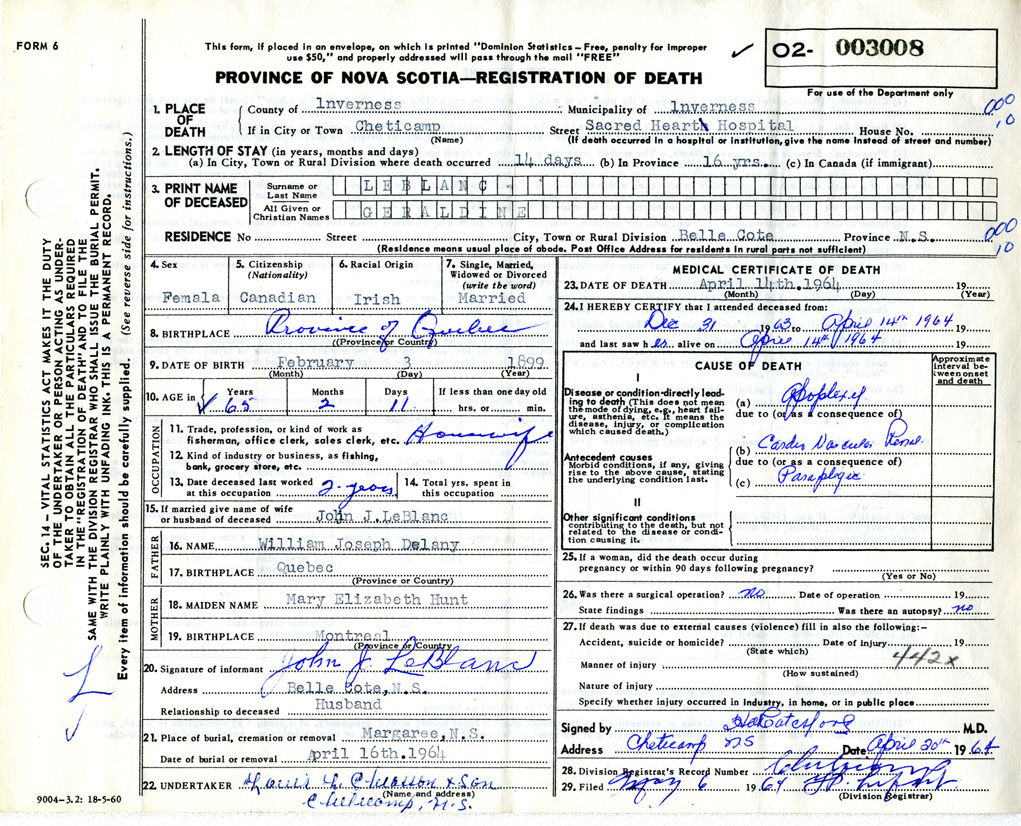 FORM 6
This form, if placed in an envelope, on which is printed "Dominion Statistics – Free, penalty for improper
use $50," and properly addressed will pass through the mail "FREE"
PROVINCE OF NOVA SCOTIA—REGISTRATION OF DEATH
✓ 02- 003008
For use of the Department only
1. PLACE OF DEATH
County of Inverness Municipality of Inverness
If in City or Town Cheticamp Street Sacred Heart Hospital House No.
(Name) (If death occurred in a hospital or institution, give the name instead of street and number)
000
10
2. LENGTH OF STAY (in years, months and days)
(a) In City, Town or Rural Division where death occurred 14 days (b) In Province 16 yrs. (c) In Canada (if immigrant)
3. PRINT NAME OF DECEASED
Surname or Last Name LEBLANC
All Given or Christian Names GERALDINE
RESIDENCE No Street City, Town or Rural Division Belle Cote Province N.S.
(Residence means usual place of abode. Post Office Address for residents in rural parts not sufficient)
000
10
4. Sex
Femala
5. Citizenship
(Nationality)
Canadian
6. Racial Origin
Irish
7. Single, Married,
Widowed or Divorced
(write the word)
Married
8. BIRTHPLACE Province of Quebec
(Province or Country)
9. DATE OF BIRTH February 3 1899
(Month) (Day) (Year)
10. AGE in Years Months Days If less than one day old
✓ 65 2 11 hrs. or min.
OCCUPATION
11. Trade, profession, or kind of work as
fisherman, office clerk, sales clerk, etc. Housewife
12. Kind of industry or business, as fishing,
bank, grocery store, etc.
13. Date deceased last worked
at this occupation 2-years
14. Total yrs. spent in
this occupation
15. If married give name of wife
or husband of deceased John J.LeBlanc
FATHER
16. NAME William Joseph Delany
17. BIRTHPLACE Quebec
(Province or Country)
MOTHER
18. MAIDEN NAME Mary Elizabeth Hunt
19. BIRTHPLACE Montreal
(Province or Country)
20. Signature of informant John J LeBlanc
Address Belle Cote, N.S.
Relationship to deceased Husband
21. Place of burial, cremation or removal Margaree, N.S.
Date of burial or removal April 16th. 1964
22. UNDERTAKER & Son
(Name and address)
Cheticamp, N.S.
9004-3.2: 18-5-60
MEDICAL CERTIFICATE OF DEATH
23. DATE OF DEATH April 14th. 1964 19
(Month) (Day) (Year)
24. I HEREBY CERTIFY that I attended deceased from:
Dec 31 1963 to April 14th 1964 19
and last saw her alive on April 14th 1964 19
CAUSE OF DEATH
Approximate interval between onset and death
I
Disease or condition directly leading to death (This does not mean the mode of dying, e.g., heart failure, asthenia, etc. It means the disease, injury, or complication which caused death.)
(a) Apoplexy
due to (or as a consequence of)
Antecedent causes
Morbid conditions, if any, giving rise to the above cause, stating the underlying condition last.
(b) Cardio Vascular Renal
due to (or as a consequence of)
(c) Paraplegic
II
Other significant conditions
contributing to the death, but not related to the disease or condition causing it.
25. If a woman, did the death occur during
pregnancy or within 90 days following pregnancy?
(Yes or No)
26. Was there a surgical operation? no Date of operation 19
State findings Was there an autopsy? no
27. If death was due to external causes (violence) fill in also the following:-
Accident, suicide or homicide? Date of injury 19
(State which)
442x
Manner of injury
(How sustained)
Nature of injury
Specify whether injury occurred in industry, in home, or in public place
Signed by M.D.
Address Cheticamp NS Date April 20th 1964
28. Division Registrar's Record Number
29. Filed May 6 1964
(Division Registrar)
SEC. 14 – VITAL STATISTICS ACT MAKES IT THE DUTY
OF THE UNDERTAKER OR PERSON ACTING AS UNDER-
TAKER TO OBTAIN ALL THE PARTICULARS REQUIRED
IN THE "REGISTRATION OF DEATH" AND TO FILE THE
SAME WITH THE DIVISION REGISTRAR WHO SHALL ISSUE THE BURIAL PERMIT.
WRITE PLAINLY WITH UNFADING INK. THIS IS A PERMANENT RECORD.
Every item of information should be carefully supplied. (See reverse side for instructions.)